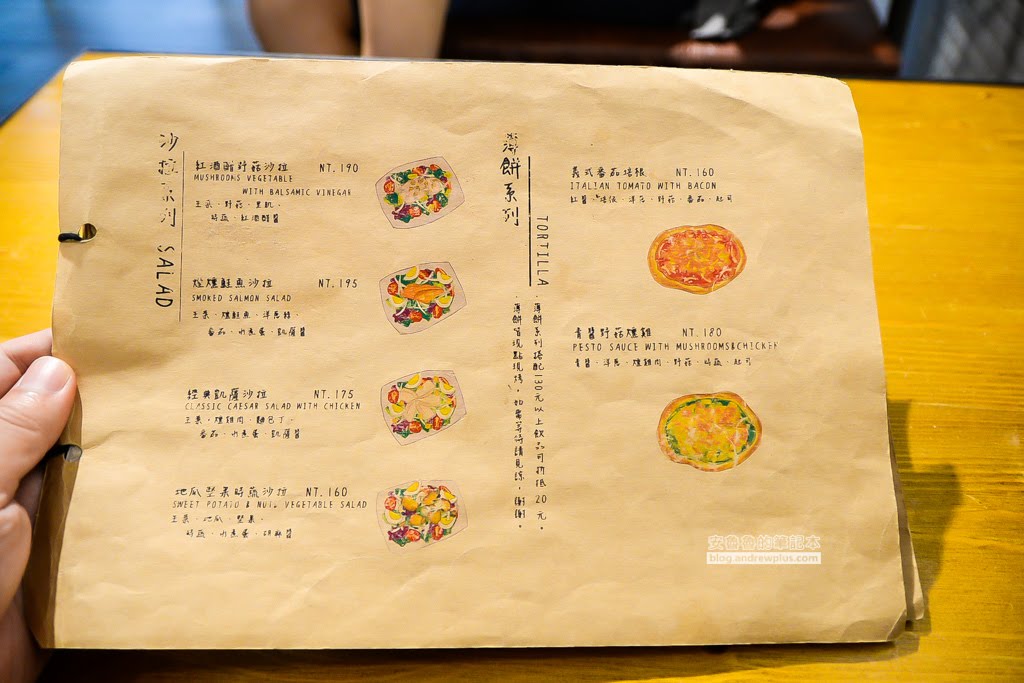 沙拉系列 SALAD
紅酒醋野菇沙拉 NT.190
MUSHROOMS VEGETABLE
WITH BALSAMIC VINEGAR
生菜．野菇．
時蔬．紅酒醋醬
煙燻鮭魚沙拉 NT.195
SMOKED SALMON SALAD
生菜．燻鮭魚．洋蔥絲．
番茄．水煮蛋．凱薩醬
經典凱薩沙拉 NT.175
CLASSIC CAESAR SALAD WITH CHICKEN
生菜．燻雞肉．麵包丁．
番茄．水煮蛋．凱薩醬
地瓜堅果時蔬沙拉 NT.160
SWEET POTATO & NUT. VEGETABLE SALAD
生菜．地瓜．堅果．
時蔬．水煮蛋．胡麻醬
薄餅系列
TORTILLA
．薄餅系列搭配130元以上飲品可折抵20元。
．薄餅皆現點現烤，如需等待請見諒，謝謝。
義式番茄培根 NT.160
ITALIAN TOMATO WITH BACON
紅醬．培根．洋蔥．野菇．番茄．起司
青醬野菇燻雞 NT.180
PESTO SAUCE WITH MUSHROOMS&CHICKEN
青醬．洋蔥．燻雞肉．野菇．時蔬．起司
安魯魯的筆記本
blog.andrewplus.com